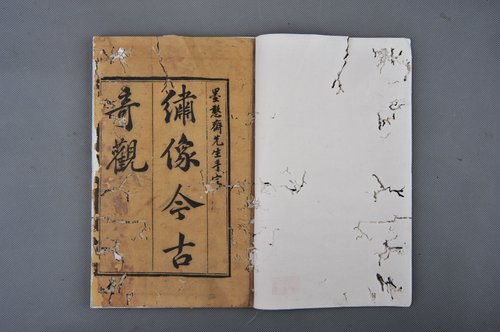 墨憨齋先生手定
繡像今古
奇觀